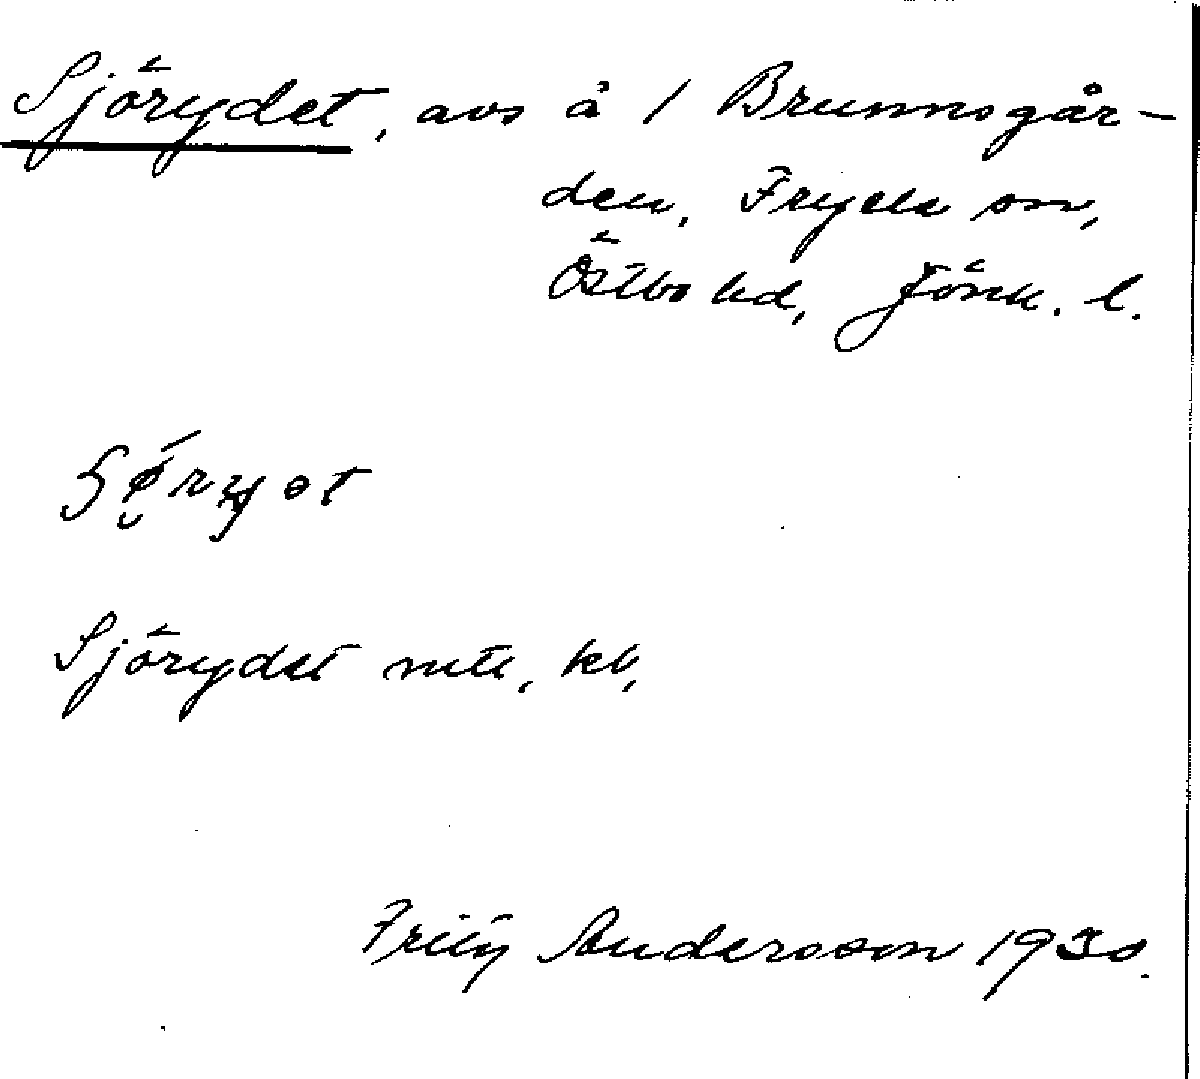 Sjörydet, avs å 1 Brunnsgår-
den, Fryele sn,
Östbo hd, Jönk. l.
Sjörydet mtl, kb,
Fritz Andersson 1930.